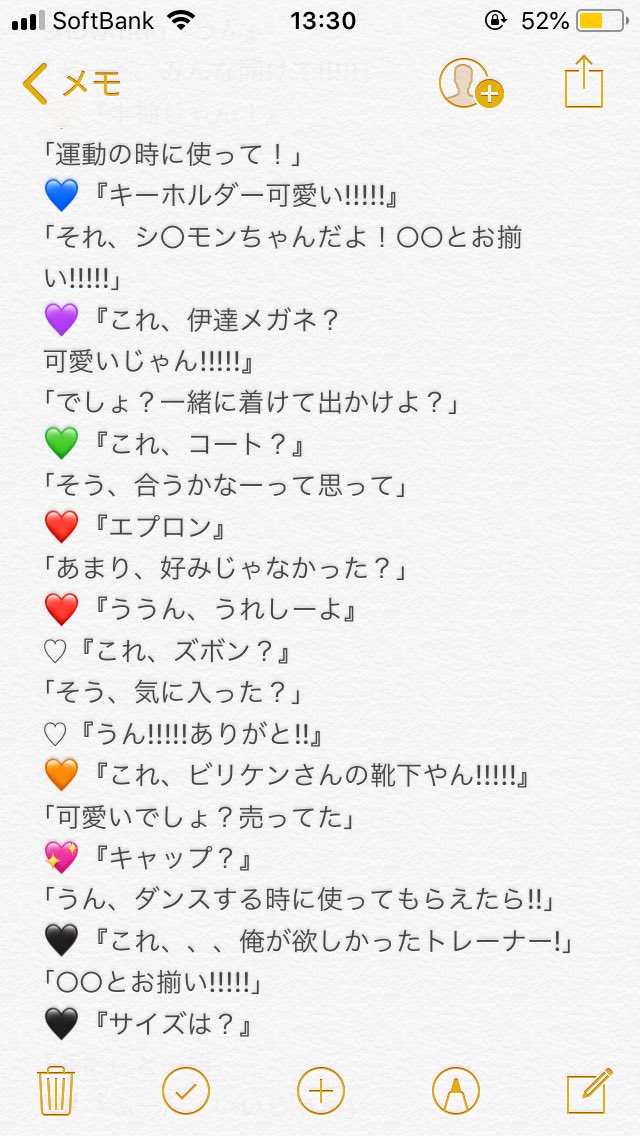 SoftBank 13:30 52%
メモ
「運動の時に使って！」
💙『キーホルダー可愛い!!!!!』
「それ、シ〇モンちゃんだよ！〇〇とお揃
い!!!!!」
💜『これ、伊達メガネ？
可愛いじゃん!!!!!』
「でしょ？一緒に着けて出かけよ？」
💚『これ、コート？』
「そう、合うかなーって思って」
❤️『エプロン』
「あまり、好みじゃなかった？」
❤️『ううん、うれしーよ』
♡『これ、ズボン？』
「そう、気に入った？」
♡『うん!!!!!ありがと!!』
🧡『これ、ビリケンさんの靴下やん!!!!!』
「可愛いでしょ？売ってた」
💖『キャップ？』
「うん、ダンスする時に使ってもらえたら!!」
🖤『これ、、、俺が欲しかったトレーナー!」
「〇〇とお揃い!!!!!」
🖤『サイズは？』